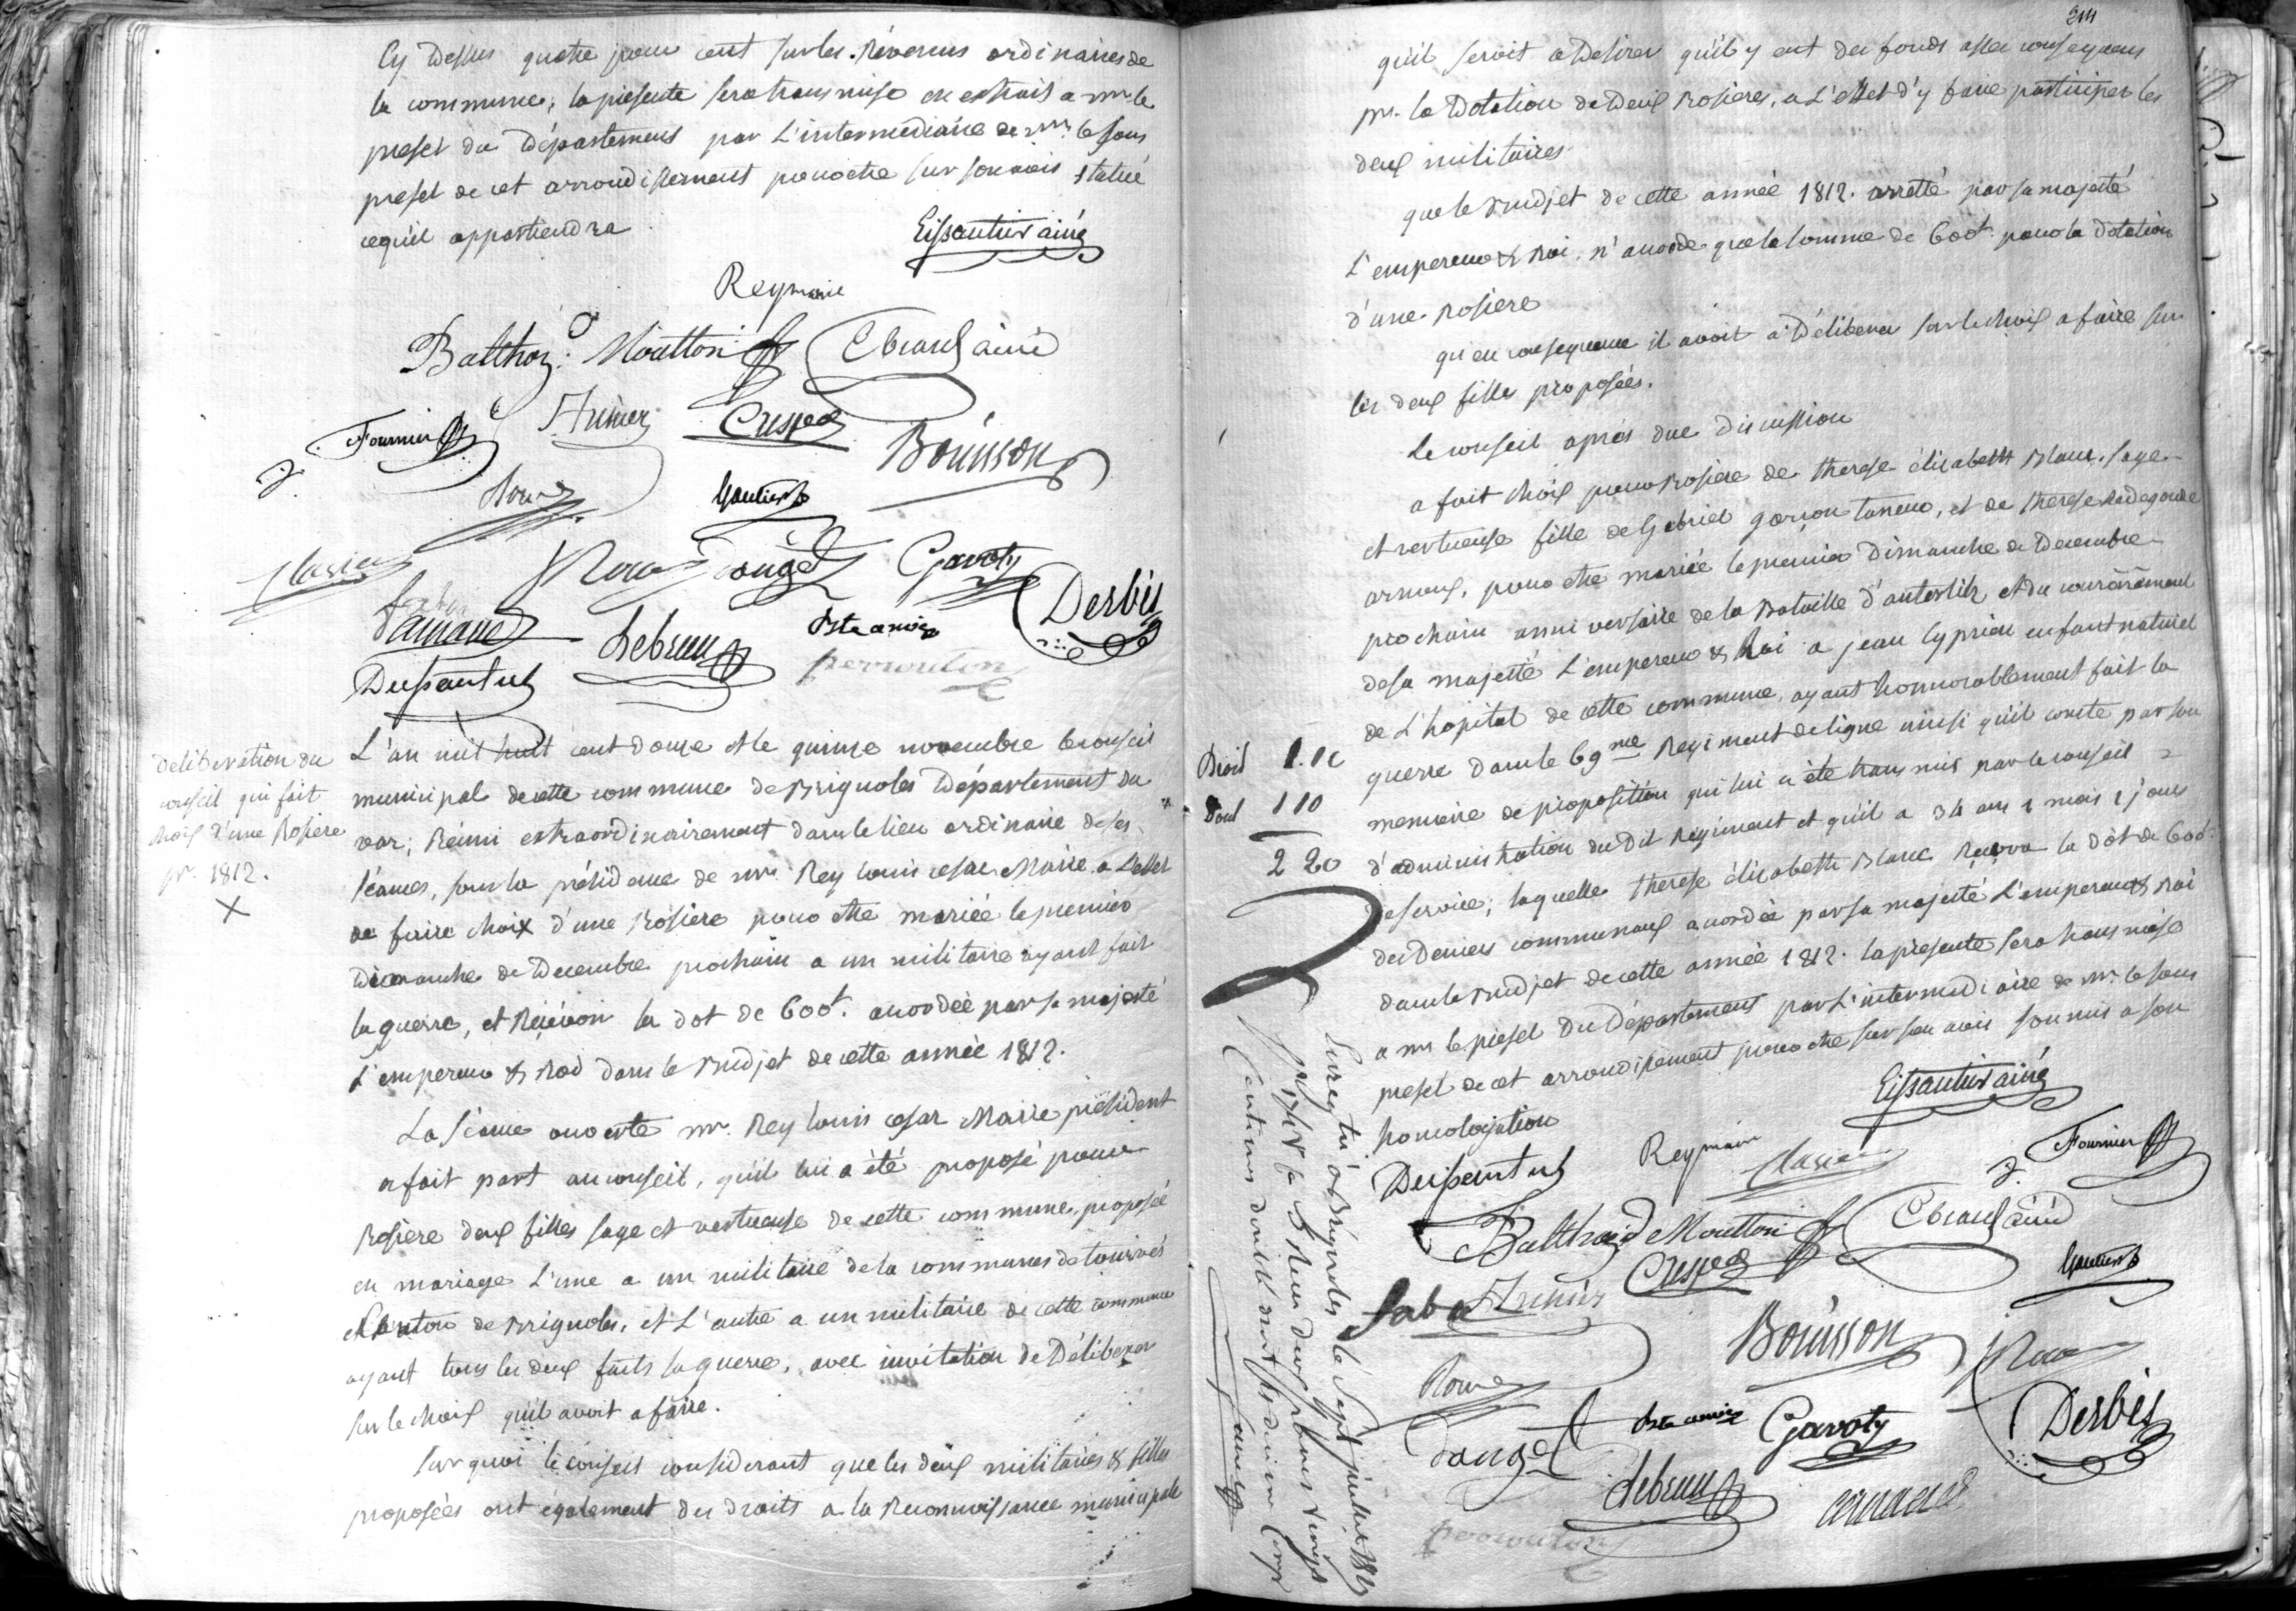 Cy dessus quatre pour cent sur les Révenus ordinaires de
la commune; la présente sera transmise en extrait a mr. le
prefet du Département par L'intermediaire de mr. le sous
prefet de cet arrondissement pour etre sur son avis statué
cequ'il appartiendra
Eissautier ainé
Rey maire
Balthaz.d Moutton
Ebrard ainé
J. Fournier
Crespo
Bouisson
Gautier
Gavoty
Amaud
Lebrun
Derbès
Perrouton
L'an mil huit cent douze et le quinze novembre le conseil
municipal de cette commune de Brignoles Département du
var; Réuni extraordinairement dans le lieu ordinaire de ses
séances, sous la présidence de mr. Rey Louis cesar Maire a L'effet
de faire choix d'une Rosiere pour etre mariée le premier
Dimanche de Decembre prochain a un militaire ayant fait
la guerre, et Récévoir la dot de 600f. accordée par sa majesté
L'empereur & Roi dans le Budjet de cette année 1812.
La séance ouverte mr. Rey Louis cesar Maire président
a fait part au conseil, qu'il lui a été proposé pour
Rosiere deux filles sage et vertueuse de cette commune, proposée
en mariage L'une a un militaire de la communes de tourvés
canton de Brignoles, et L'autre a un militaire de cette commune
ayant tous les deux faits la guerre, avec invitation de Déliberer
sur le choix qu'il avoit a faire.
Sur quoi le conseil considerant que les deux militaires & filles
proposées ont également des droits a la Reconnoissance municipale
Deliberation du
conseil qui fait
choix d'une Rosiere
pr. 1812.
X
214
qu'il seroit a Desirer qu'il y eut des fonds assez consequens
pr. la Dotation de Deux Rosieres, a L'effet d'y faire participer les
deux militaires
que le Budjet de cette année 1812. arretté par sa majesté
L'empereur & Roi, n'accorde que la somme de 600f. pour la dotation
d'une Rosiere
qu'en consequence il avoit a Déliberer sur le choix a faire sur
les deux filles proposées.
Le conseil aprés due discussion
a fait choix pour Rosiere de therese élizabeth Blanc, sage
et vertueuse fille de Gabriel garçon tanneur, et de therese Radegonde
arnoux, pour etre mariée le premier Dimanche de Decembre
prochain anniversaire de la Bataille d'austerlitz et du couronnement
de sa majesté L'empereur & Roi a jean Cyprien enfant naturel
de L'hopital de cette commune, ayant honnorablement fait la
guerre dans le 69me Regiment de ligne ainsi qu'il conste par son
memoire de proposition qui lui a été transmis par le conseil
d'administration du dit Regiment et qu'il a 34 ans 1 mois 1 jours
de service; laquelle therese élizabeth Blanc Recevra la dot de 600f.
des Deniers communaux accordée par sa majesté L'empereur & Roi
dans le Budjet de cette année 1812. la présente sera transmise
a mr le prefet du Département par L'intermediaire de mr. le sous
prefet de cet arrondissement pour etre sur son avis soumis a son
homologation
Droit 1.10
Doul 1 10
2 20
Enregtré a Brignoles le sept juillet 1813
deux francs vingt
Centimes double droit & dixieme Compr
Eissautier ainé
Rey maire
J. Fournier
Balthaz.d Moutton
Ebrard ainé
Crespo
Gautier
Bouisson
Gavoty
Derbès
Lebrun
Amaud
Perrouton